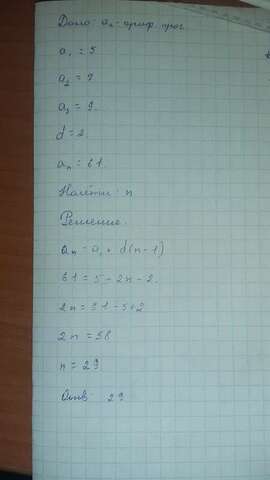 Дано: aₙ - ариф. прог.
a₁ = 5
a₂ = 7
a₃ = 9.
d = 2.
aₙ = 61.
Найти: n
Решение.
aₙ = a₁ + d(n-1)
61 = 5 - 2n - 2.
2n = 61 - 5+2
2n = 58
n = 29
Отв 29